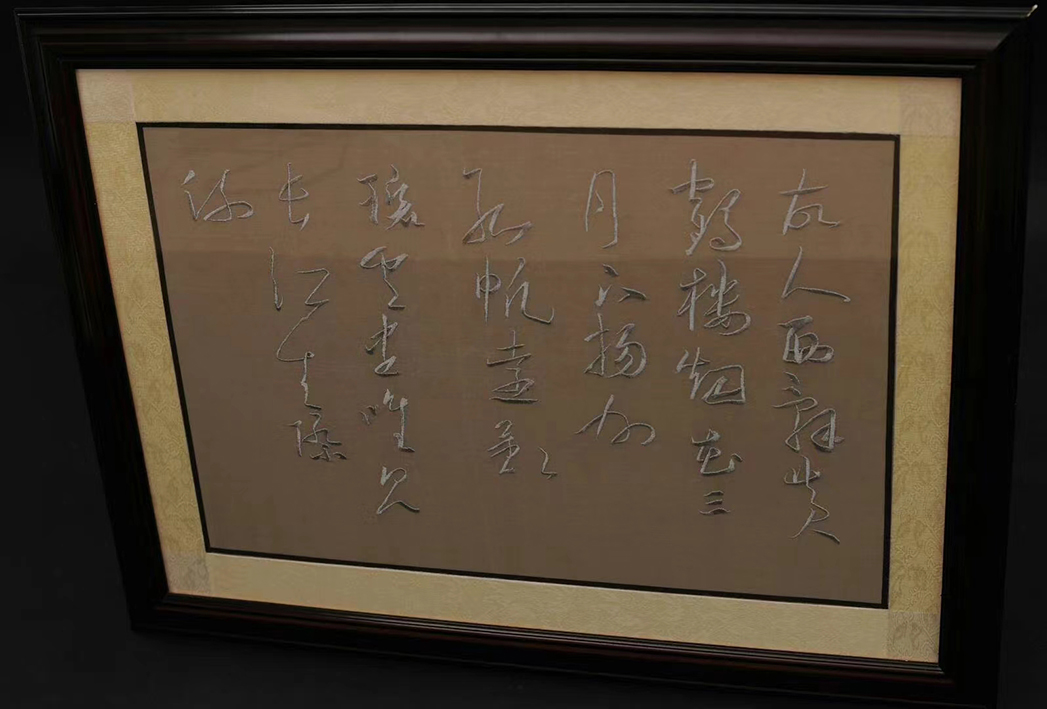 故人西辭黃
鶴樓烟花三
月下揚州
孤帆遠影
碧空盡唯見
長江天際
流